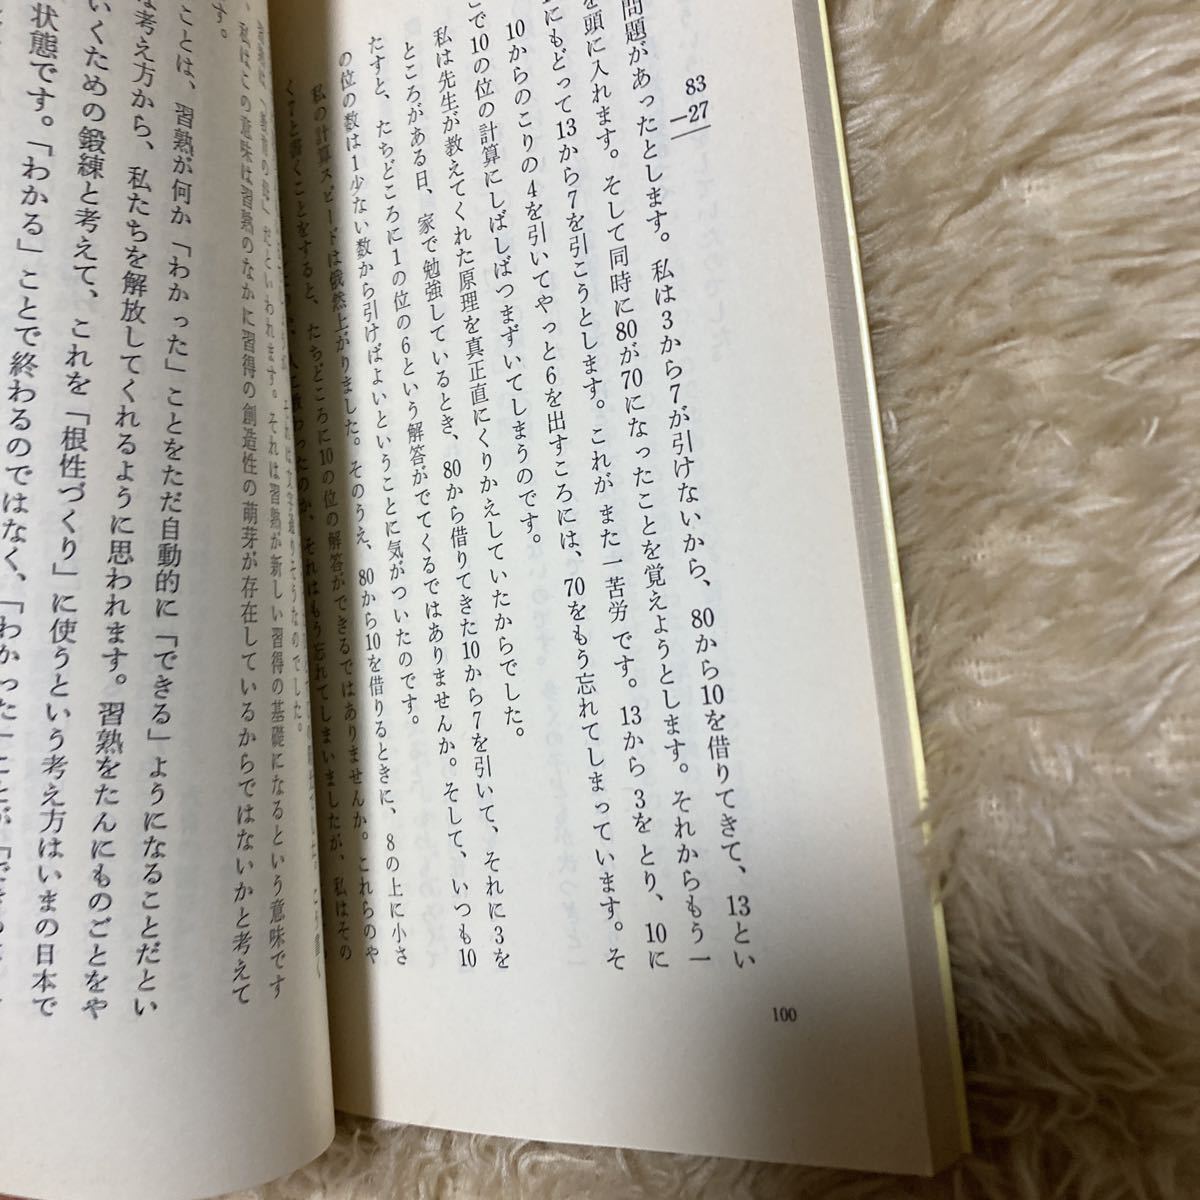 83
−27
問題があったとします。私は3から7が引けないから、80から10を借りてきて、13とい
を頭に入れます。そして同時に80が70になったことを覚えようとします。それからもう一
にもどって13から7を引こうとします。これがまた一苦労です。13から3をとり、10に
10からのこりの4を引いてやっと6を出すころには、70をもう忘れてしまっています。そ
で10の位の計算にしばしばつまずいてしまうのです。
私は先生が教えてくれた原理を真正直にくりかえしていたからでした。
ところがある日、家で勉強しているとき、80から借りてきた10から7を引いて、それに3を
たすと、たちどころに1の位の6という解答がでてくるではありませんか。そして、いつも10
の位の数は1少ない数から引けばよいということに気がついたのです。
私の計算スピードは俄然上がりました。そのうえ、80から10を借りるときに、8の上に小さ
く7と書くことをすると、たちどころに10の位の解答ができるではありませんか。これらのや
人に教わったのか、それはもう忘れてしまいましたが、私はその
100
それは文字通りそうなのでした。
だといわれます。それは習熟が新しい習得の基礎になるという意味です
、私はこの意味は習熟のなかに習得の創造性の萌芽が存在しているからではないかと考えて
す。
ことは、習熟が何か「わかった」ことをただ自動的に「できる」ようになることだとい
な考え方から、私たちを解放してくれるように思われます。習熟をたんにものごとをや
いくための鍛練と考えて、これを「根性づくり」に使うという考え方はいまの日本で
状態です。「わかる」ことで終わるのではなく、「わかった」ことが